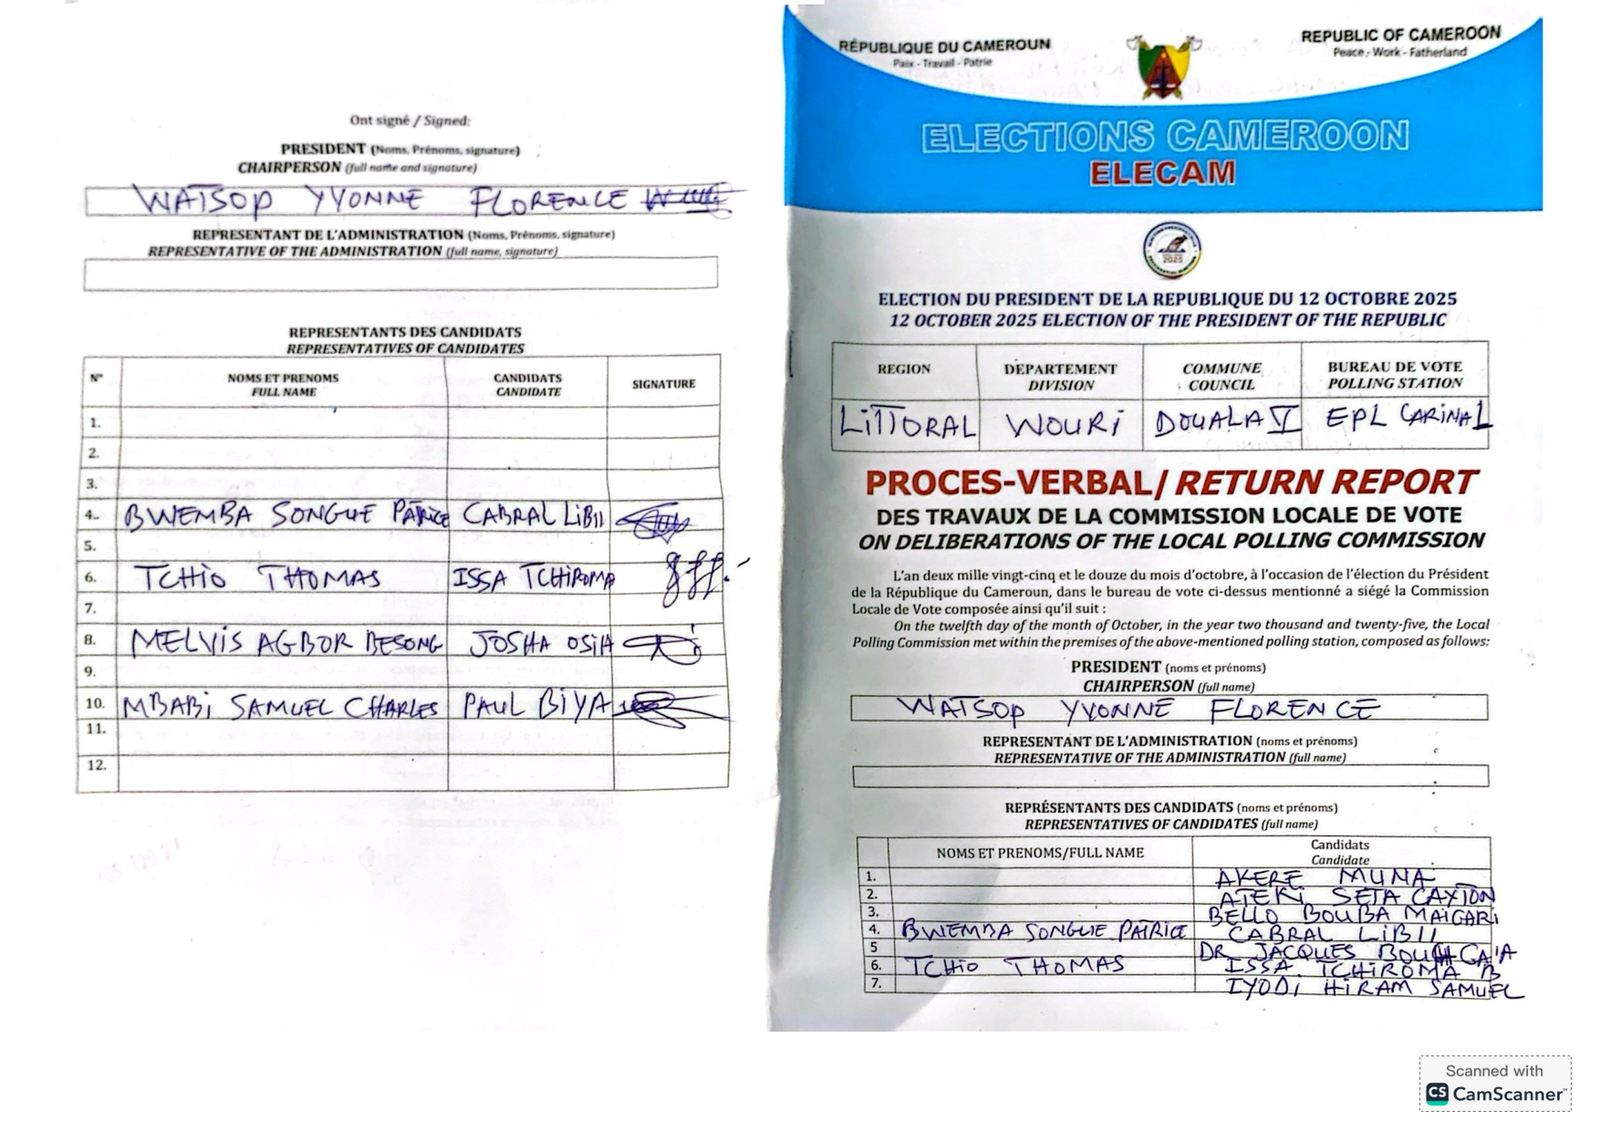 Ont signé / Signed:
PRESIDENT (Noms, Prénoms, signature)
CHAIRPERSON (full name and signature)
WATSOP YVONNE FLORENCE
REPRESENTANT DE L'ADMINISTRATION (Noms, Prénoms, signature)
REPRESENTATIVE OF THE ADMINISTRATION (full name, signature)
REPRESENTANTS DES CANDIDATS
REPRESENTATIVES OF CANDIDATES
N° NOMS ET PRENOMS CANDIDATS SIGNATURE
FULL NAME CANDIDATE
1.
2.
3.
4. BWEMBA SONGUE PATRICE CABRAL LIBII
5.
6. TCHIO THOMAS ISSA TCHIROMA
7.
8. MELVIS AGBOR BESONG JOSHA OSIH
9.
10. MBABI SAMUEL CHARLES PAUL BIYA
11.
12.
RÉPUBLIQUE DU CAMEROUN
Paix - Travail - Patrie
REPUBLIC OF CAMEROON
Peace - Work - Fatherland
ELECTIONS CAMEROON
ELECAM
2025
ELECTION DU PRESIDENT DE LA REPUBLIQUE DU 12 OCTOBRE 2025
12 OCTOBER 2025 ELECTION OF THE PRESIDENT OF THE REPUBLIC
REGION DÉPARTEMENT COMMUNE BUREAU DE VOTE
DIVISION COUNCIL POLLING STATION
LITTORAL WOURI DOUALA V EPL CARINAL
PROCES-VERBAL/ RETURN REPORT
DES TRAVAUX DE LA COMMISSION LOCALE DE VOTE
ON DELIBERATIONS OF THE LOCAL POLLING COMMISSION
L'an deux mille vingt-cinq et le douze du mois d'octobre, à l'occasion de l'élection du Président
de la République du Cameroun, dans le bureau de vote ci-dessus mentionné a siégé la Commission
Locale de Vote composée ainsi qu'il suit :
On the twelfth day of the month of October, in the year two thousand and twenty-five, the Local
Polling Commission met within the premises of the above-mentioned polling station, composed as follows:
PRESIDENT (noms et prénoms)
CHAIRPERSON (full name)
WATSOP YVONNE FLORENCE
REPRESENTANT DE L'ADMINISTRATION (noms et prénoms)
REPRESENTATIVE OF THE ADMINISTRATION (full name)
REPRÉSENTANTS DES CANDIDATS (noms et prénoms)
REPRESENTATIVES OF CANDIDATES (full name)
NOMS ET PRENOMS/FULL NAME Candidats
Candidate
1. AKERE MUNA
2. ATEKI SETA CAXTON
3. BELLO BOUBA MAIGARI
4. BWEMBA SONGUE PATRICE CABRAL LIBII
5 DR JACQUES
6. TCHIO THOMAS ISSA TCHIROMA B
7. IYODI HIRAM SAMUEL
Scanned with
CS CamScanner